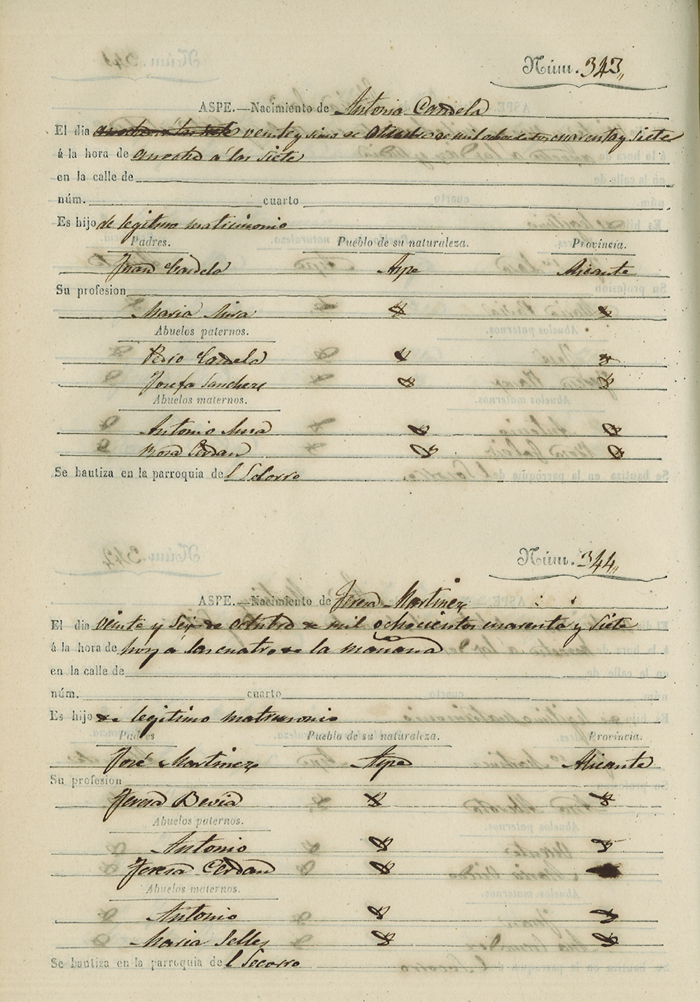 Núm. 343,,
ASPE.—Nacimiento de Antonia Candela
El dia veinte y seis de Octubre de mil ochocientos cuarenta y siete
á la hora de anoche á las siete
en la calle de
núm. cuarto
Es hijo de legitimo matrimonio
Padres. Pueblo de su naturaleza. Provincia.
Juan Candela Aspe Alicante
Su profesion
Maria Mira
Abuelos paternos.
Candela
Josefa Sanchez
Abuelos maternos.
Antonio Mira
Rosa Cerdan
Se bautiza en la parroquia de l Socorro
Núm. 344,,
ASPE.—Nacimiento de Teresa Martinez
El dia veinte y seis de Octubre de mil ochocientos cuarenta y siete
á la hora de hoy a las cuatro de la mañana
en la calle de
núm. cuarto
Es hijo de legitimo matrimonio
Padres Pueblo de su naturaleza. Provincia.
José Martinez Aspe Alicante
Su profesion
Teresa Devia
Abuelos paternos.
Antonio
Teresa Cerdan
Abuelos maternos.
Antonio
Maria Selles
Se bautiza en la parroquia de l Socorro